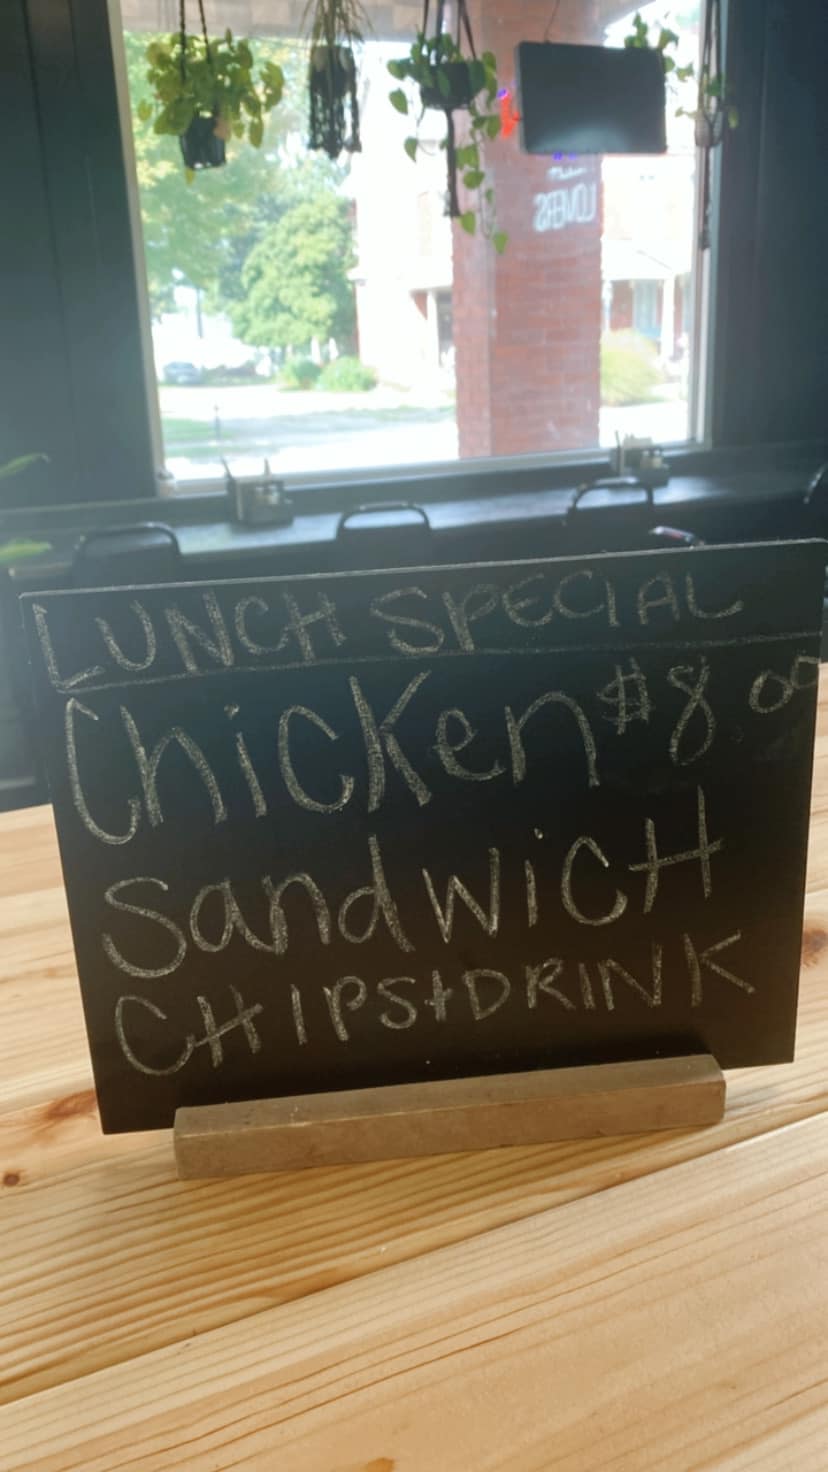 LOVERS
LUNCH SPECIAL
Chicken $8.00
SandwicH
CHIPS+DRINK